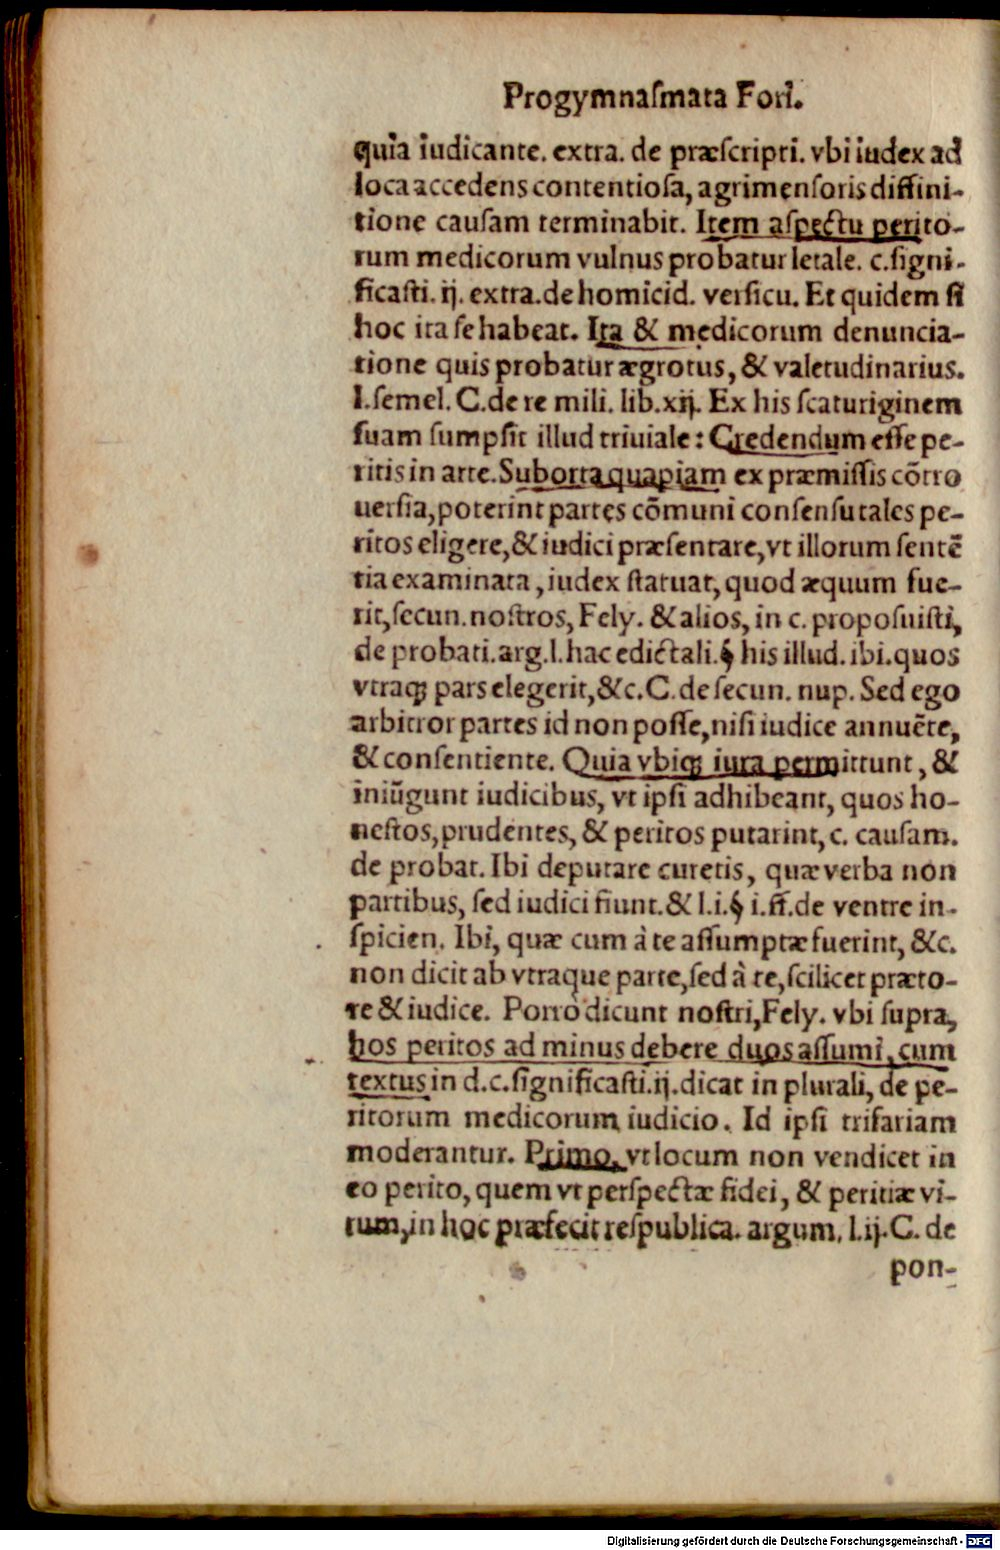 Progymnaſmata Fori.
quia iudicante. extra. de præſcripti. vbi iudex ad
loca accedens contentioſa, agrimenſoris diffini-
tione cauſam terminabit. Item aſpectu perito-
rum medicorum vulnus probatur letale. c.ſigni-
ficaſti. ij. extra. de homicid. verſicu. Et quidem ſi
hoc ita ſe habeat. Ita & medicorum denuncia-
tione quis probatur ægrotus, & valetudinarius.
l.ſemel. C.de re mili. lib.xij. Ex his ſcaturiginem
ſuam ſumpſit illud triuiale: Credendum eſſe pe-
ritis in arte. Suborta quapiam ex præmiſſis cõtro
uerſia, poterint partes cõmuni conſenſu tales pe-
ritos eligere, & iudici præſentare, vt illorum ſentẽ
tia examinata, iudex ſtatuat, quod æquum fue-
rit, ſecun. noſtros, Fely. & alios, in c. propoſuiſti,
de probati. arg. l. hac edictali. § his illud. ibi. quos
vtraqꝫ pars elegerit, &c. C. de ſecun. nup. Sed ego
arbitror partes id non poſſe, niſi iudice annuẽte,
& conſentiente. Quia vbiqꝫ iura permittunt, &
iniũgunt iudicibus, vt ipſi adhibeant, quos ho-
neſtos, prudentes, & peritos putarint, c. cauſam.
de probat. Ibi deputare curetis, quæ verba non
partibus, ſed iudici fiunt. & l.i.§ i.ff.de ventre in-
ſpicien. Ibi, quæ cum à te aſſumptæ fuerint, &c.
non dicit ab vtraque parte, ſed à te, ſcilicet præto-
re & iudice. Porrò dicunt noſtri, Fely. vbi ſupra,
hos peritos ad minus debere duos aſſumi, cum
textus in d.c.ſignificaſti.ij.dicat in plurali, de pe-
ritorum medicorum iudicio. Id ipſi trifariam
moderantur. Primo, vt locum non vendicet in
eo perito, quem vt perſpectæ fidei, & peritiæ vi-
rum, in hoc præfecit reſpublica. argum. l.ij.C. de
pon-
Digitalisierung gefördert durch die Deutsche Forschungsgemeinschaft - DFG